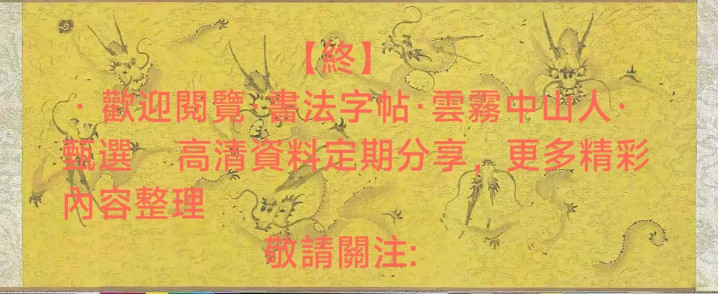 【終】
·歡迎閱覽·書法字帖·雲霧中山人·
甄選 高清資料定期分享，更多精彩
內容整理
敬請關注: